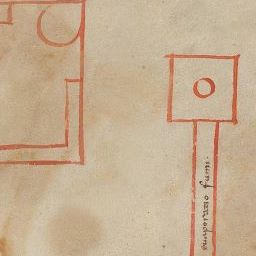 euaporatio fumi·